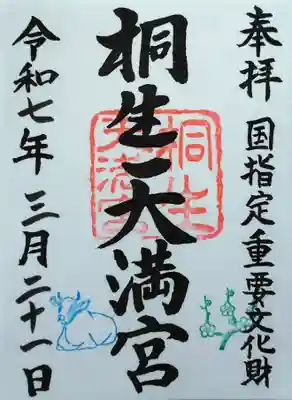 奉拝 国指定重要文化財
桐生天満宮
桐生天満宮
令和七年 三月二十一日